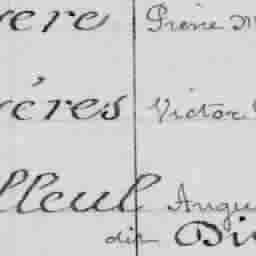 vere Irène M
vères Victor
lleul Augu
dit Di